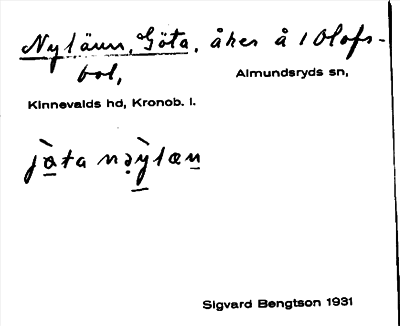 Nylänn, Göta, åker å 1 Olofs-
bol,
Almundsryds sn,
Kinnevalds hd, Kronob. l.
jò̱ta nə̣ỳ̱læṉ
Sigvard Bengtson 1931